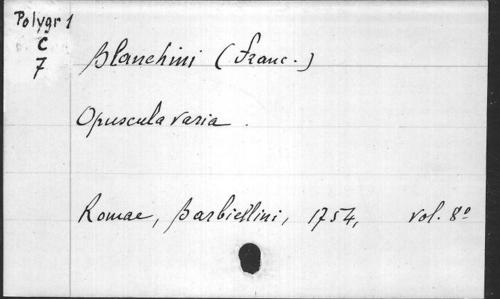 Polygr 1
C
7
Blanchini (Franc.)
Opuscula varia.
Romae, Barbiellini, 1754, vol. 8º